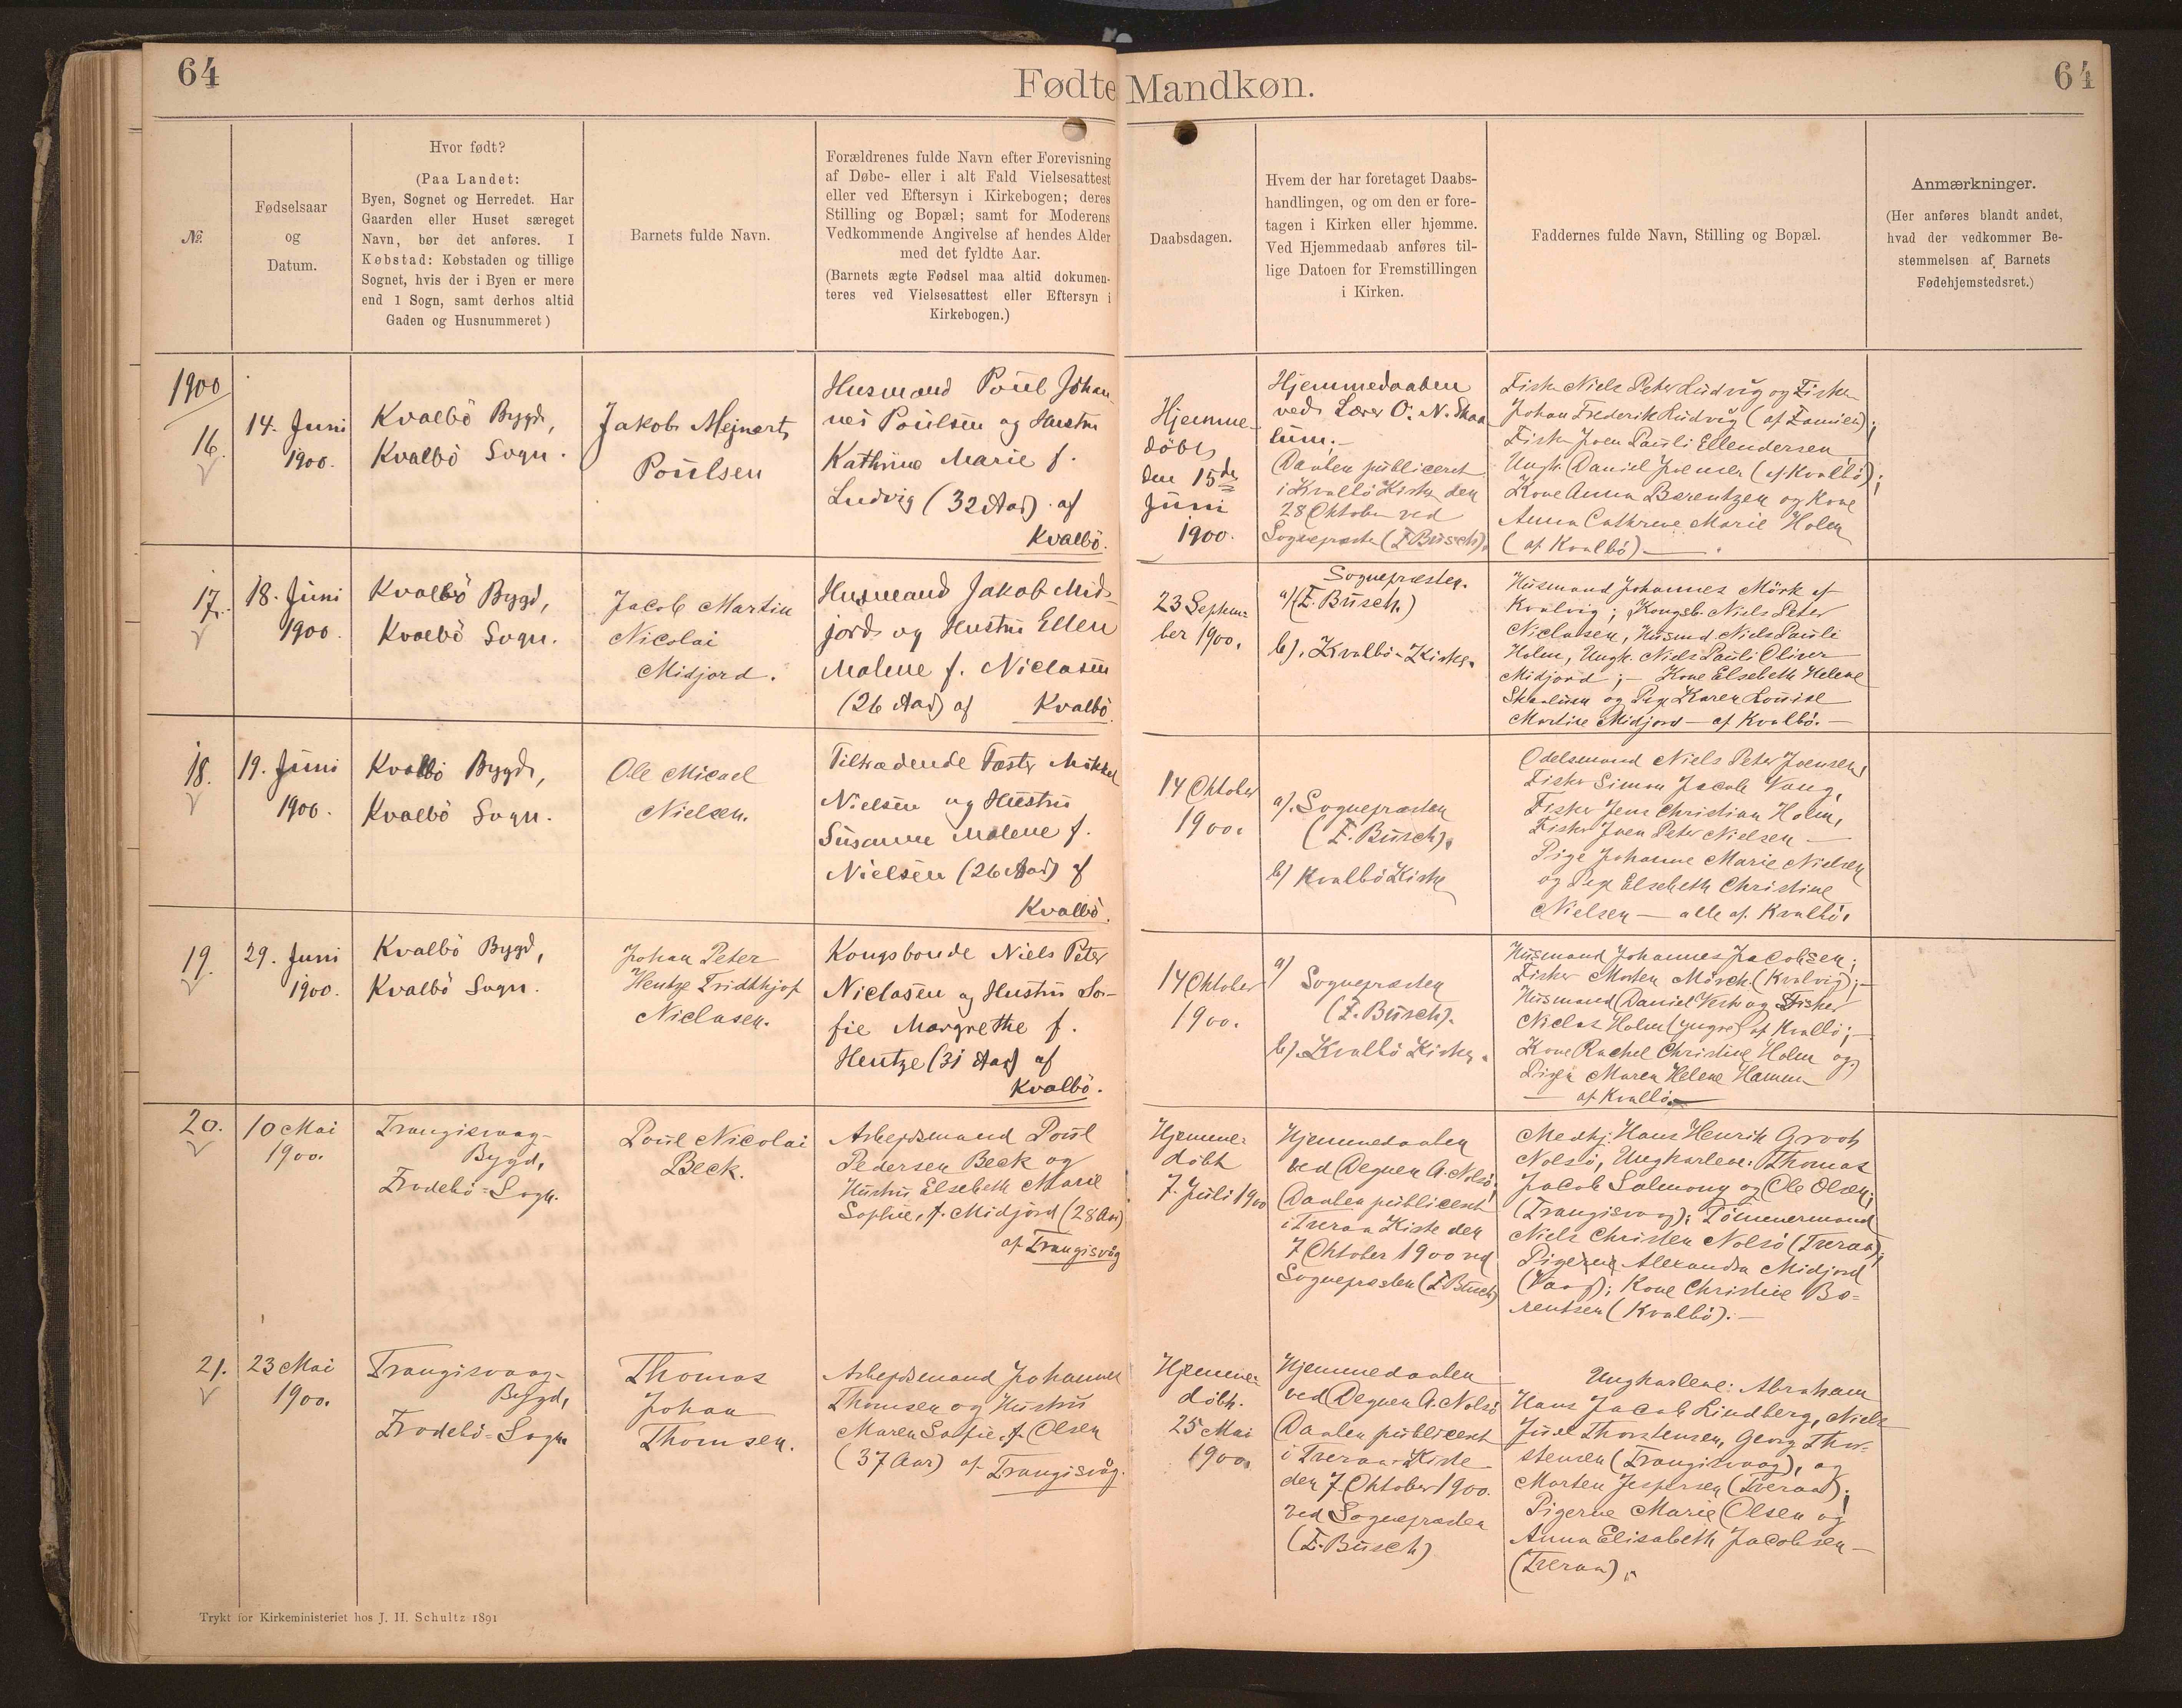 64
Fødte Mandkøn.
64
№
Fødselsaar
og
Datum.
Hvor født?
(Paa Landet:
Byen, Sognet og Herredet. Har
Gaarden eller Huset særeget
Navn, bør det anføres. I
Købstad: Købstaden og tillige
Sognet, hvis der i Byen er mere
end 1 Sogn, samt derhos altid
Gaden og Husnummeret)
Barnets fulde Navn.
Forældrenes fulde Navn efter Forevisning
af Døbe- eller i alt Fald Vielsesattest
eller ved Eftersyn i Kirkebogen; deres
Stilling og Bopæl; samt for Moderens
Vedkommende Angivelse af hendes Alder
med det fyldte Aar.
(Barnets ægte Fødsel maa altid dokumen-
teres ved Vielsesattest eller Eftersyn i
Kirkebogen.)
Daabsdagen.
Hvem der har foretaget Daabs-
handlingen, og om den er fore-
tagen i Kirken eller hjemme.
Ved Hjemmedaab anføres til-
lige Datoen for Fremstillingen
i Kirken.
Faddernes fulde Navn, Stilling og Bopæl.
Anmærkninger.
(Her anføres blandt andet,
hvad der vedkommer Be-
stemmelsen af Barnets
Fødehjemstedsret.)
1900
16.
14. Juni
1900.
Kvalbö Bygd,
Kvalbö Sogn.
Jakob Mejnert
Poülsen
Husmand Poül Johan-
nes Poülsen og Hustru
Kathrine Marie f.
Ludvig (32 Aar) af
Kvalbö.
Hjemme-
döbt
den 15de
Juni
1900.
Hjemmedaaben
ved Lærer O. N. Skaa-
lum.-
Daaben publiceret
i Kvalbö Kirke den
28 Oktober ved
Sognepræsten (F. Büsch).
Fisker Niels Peter Ludvig og Fisker
Johan Frederik Ludvig (af Famien);
Fisker Joen Pauli Ellendersen
Ungk. Daniel Joensen (af Kvalbö);
Kone Anna Berentzen og Kone
Anna Cathrine Marie Holm
(af Kvalbö) —.
17.
18. Juni
1900.
Kvalbö Bygd,
Kvalbö Sogn.
Jacob Martin
Nicolai
Midjord.
Husmand Jakob Mid-
jord og Hustru Ellen
Malene f. Niclasen
(26 Aar) af Kvalbö.
23 Septem-
ber 1900.
Sognepræsten.
a) (F. Büsch.)
b). Kvalbö-Kirke.
Husmand Johannes Mörk af
Kvalvig; Kongsb. Niels Peter
Niclasen, Husmd. Niels Pauli
Holm, Ungk. Niels Pauli Oliver
Midjord;— Kone Elsebeth Helene
Skaalum og Pige Karen Louise
Martine Midjord — af Kvalbö.—
18.
19. Juni
1900.
Kvalbö Bygd,
Kvalbö Sogn.
Ole Micael
Nielsen.
Tiltrædende Fæster Mikkel
Nielsen og Hustru
Susanne Malene f.
Nielsen (26 Aar) af
Kvalbö.
14 Oktober
1900.
a). Sognepræsten
(F. Büsch).
b) Kvalbö Kirke
Odelsmand Niels Peter Joensen,
Fisker Simon Jacob Vang,
Fisker Jens Christian Holm,
Fisker Joen Peter Nielsen —
Pige Johanne Marie Nielsen
og Pige Elsebeth Christine
Nielsen — alle af Kvalbö.
19.
29. Juni
1900.
Kvalbö Bygd,
Kvalbö Sogn.
Johan Peter
Hentze Fridthjof
Niclasen.
Kongsbonde Niels Peter
Niclasen og Hustru So-
fie Margrethe f.
Hentze (31 Aar) af
Kvalbö.
14 Oktober
1900.
a) Sognepræsten
(F. Büsch).
b). Kvalbö Kirke.
Husmand Johannes Jacobsen;
Fisker Morten Mörch (Kvalvig);—
Husmand Daniel Vest og Fisker
Niclas Holm (yngre) af Kvalbö;—
Kone Rachel Christine Holm og
Pigen Maren Helene Hammer
— af Kvalbö.—
20.
10 Mai
1900.
Trangisvaag-
Bygd,
Frodebö-Sogn.
Poül Nicolai
Beck.
Arbejdsmand Poül
Pedersen Beck og
Hustru Elsebeth Marie
Sophie, f. Midjord (28 Aar)
af Trangisvåg
Hjemme-
döbt
7. Juli 1900
Hjemmedaaben
ved Degnen A. Nolsö;
Daaben publiceret
i Tveraa Kirke den
7 Oktober 1900 ved
Sognepræsten (F. Büsch)
Medhj. Hans Henrik Groot
Nolsö, Ungkarlene: Thomas
Jacob Salmony og Ole Olsen;
(Trangisvaag); Tömmermand
Niels Christen Nolsö (Tveraa),
Pigerne Alexandra Midjord
(Vaag); Kone Christine Be-
rentsen (Kvalbö).—
21.
23 Mai
1900.
Trangisvaag-
Bygd,
Frodebö-Sogn
Thomas
Johan
Thomsen.
Arbejdsmand Johannes
Thomsen og Hustru
Maren Sofie, f. Olsen
(37 Aar) af Trangisvåg.
Hjemme-
döbt.
25 Mai
1900.
Hjemmedaaben
ved Degnen A. Nolsö
Daaben publiceret
i Tveraa-Kirke
den 7. Oktober 1900.
ved Sognepræsten
(F. Büsch)
Ungkarlene: Abraham
Hans Jacob Lindberg, Niels
Juul Thorstensen, Georg Thor-
stensen (Trangisvaag), og
Morten Jespersen (Tveraa);
Pigerne Marie Olsen og
Anna Elisabeth Jacobsen —
(Tveraa).
Trykt for Kirkeministeriet hos J. H. Schultz 1891